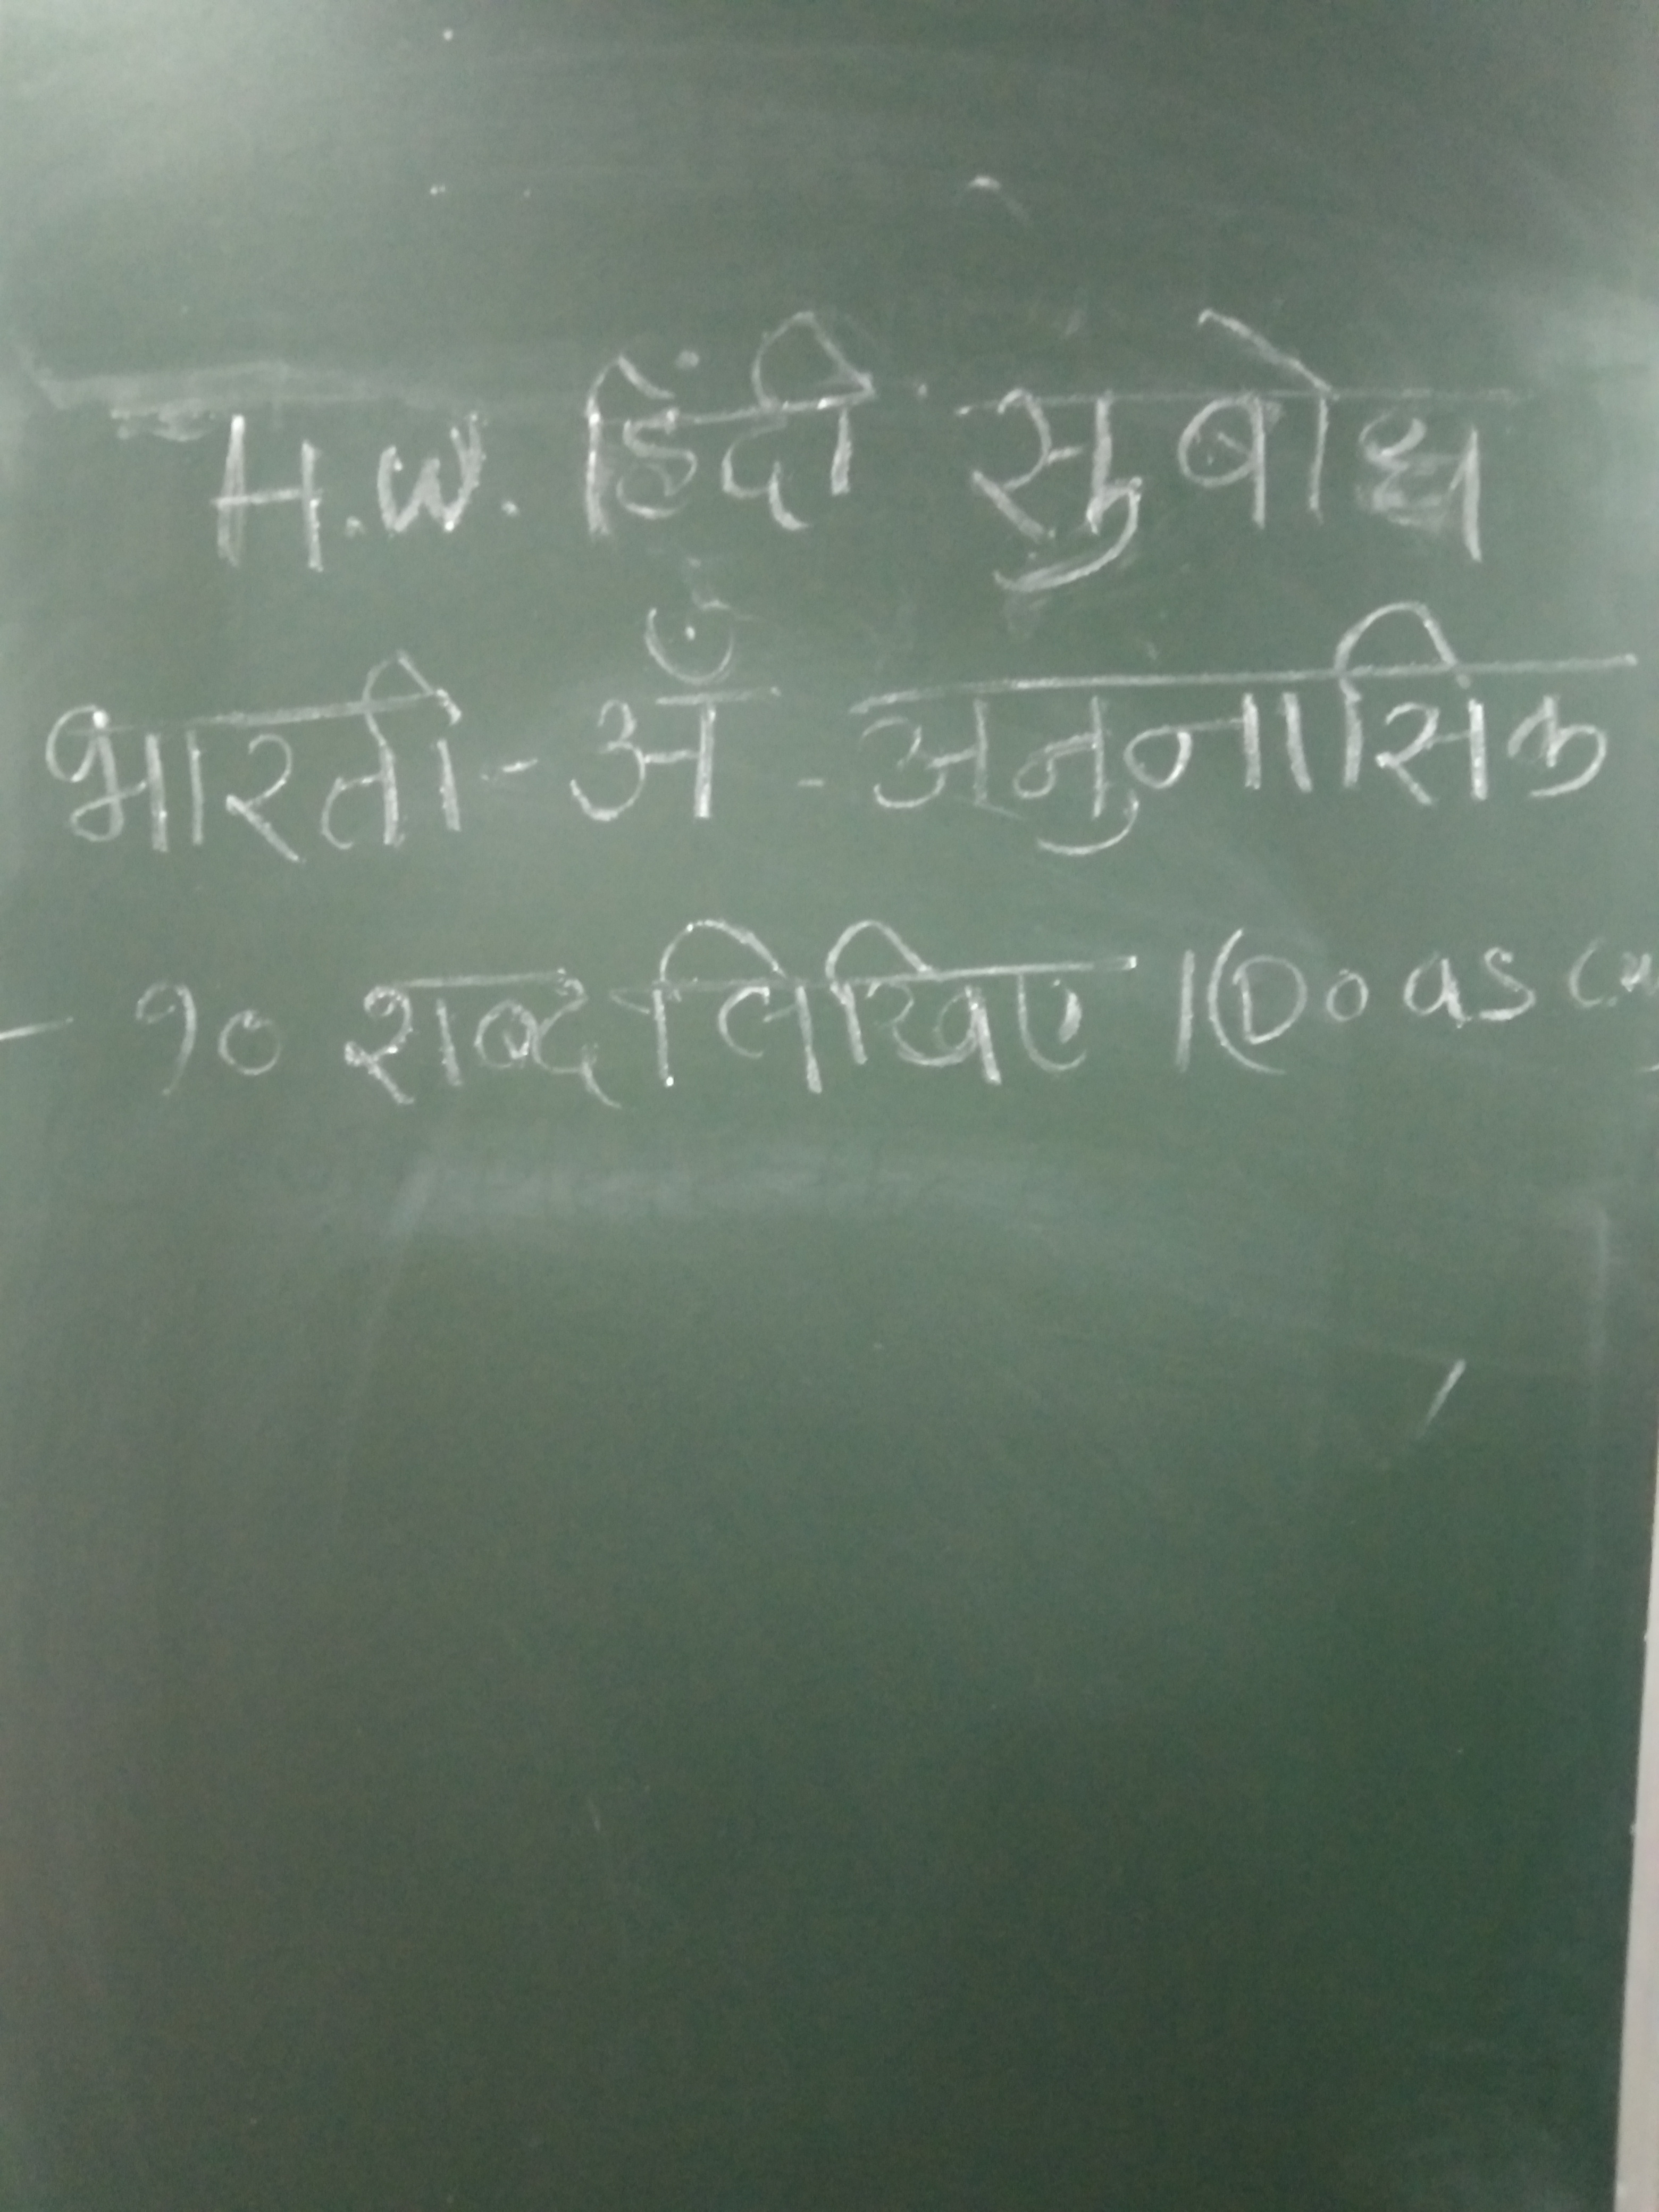 H.W. हिंदी सुबोध
भारती - अँ - अनुनासिक
- १० शब्द लिखिए । (Do as